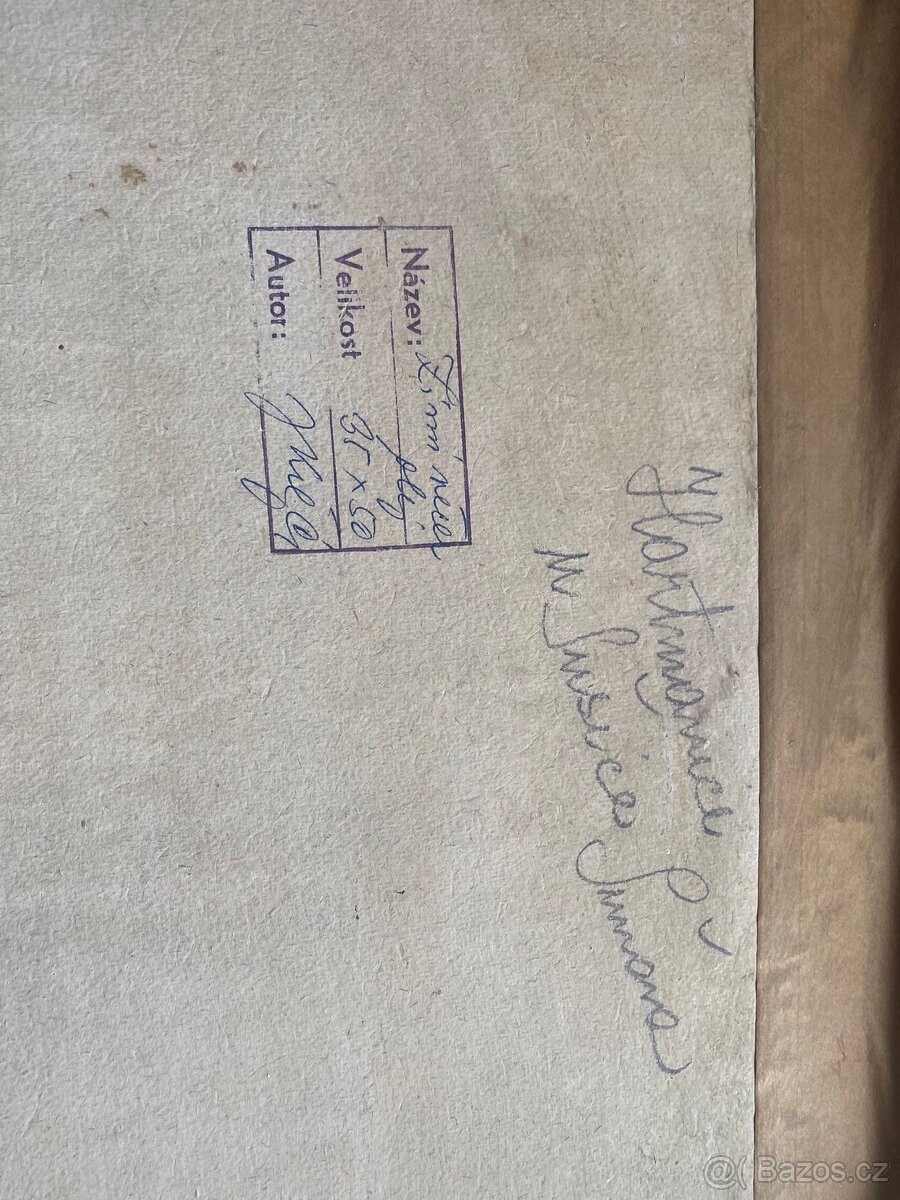 Název: Zimní večer
olej
Velikost 35 x 50
Autor:
Hartmanice
u Sušice Šumava
@( Bazos.cz